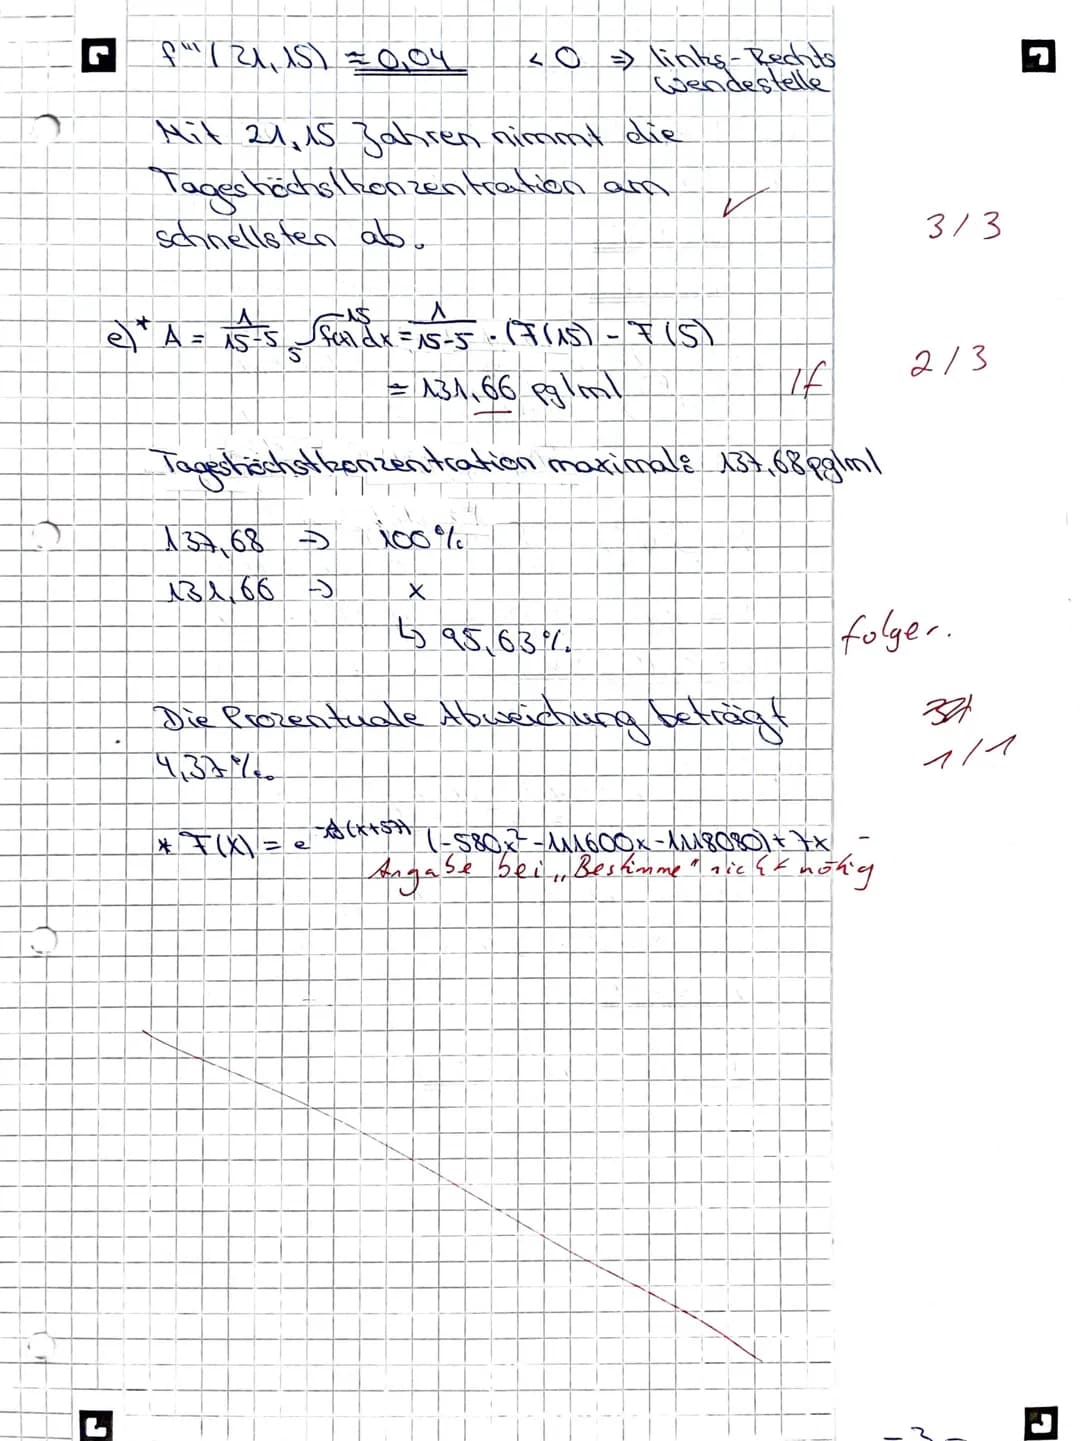 f'''(21,15) ≈ 0,04 < 0 ⇒ links-Rechts
Wendestelle
Mit 21,15 Jahren nimmt die
Tageshöchstkonzentration am
schnellsten ab. ✓
3/3
e)* A = 1/(15-5) ₅∫¹⁵ f(x) dx = 1/(15-5) · (F(15) - F(5)
2/3
= 131,66 pg/ml 1f
Tageshöchstkonzentration maximal: 137,68 pg/ml
137,68 ⇒ 100%
131,66 ⇒ x
↳ 95,63%
folger.
Die Prozentuale Abweichung beträgt
4,37%.
1/1
* F(x) = e (x+57) (-580x² -111600x -1118080) + 7x
Angabe bei „Bestimme" nicht nötig
-3-